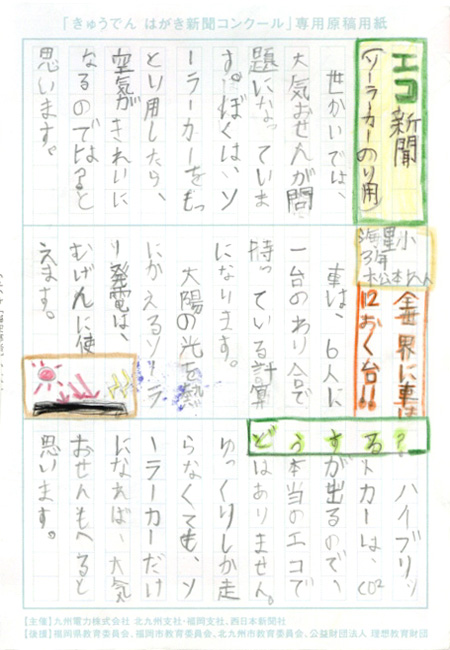 「きゅうでん はがき新聞コンクール」専用原稿用紙
エコ新聞
(ソーラーカーのり用)
世かいでは、
大気おせんが問
題になっていま
す。ぼくは、ソ
ーラーカーをもっ
とり用したら、
空気がきれいに
なるのではと
思います。
海星小
3年
全世界に車は
12おく台!!
車は、6人に
一台のわり合で
持っている計算
になります。
太陽の光を熱
にかえるソーラ
ー発電は、
むげんに使
えます。
どうする?
ハイブリッ
トカーは、CO2
が出るので、
本当のエコで
はありません。
ゆっくりしか走
らなくても、ソ
ーラーカーだけ
になれば、大気
おせんもへると
思います。
【主催】九州電力株式会社 北九州支社・福岡支社、西日本新聞社
【後援】福岡県教育委員会、福岡市教育委員会、北九州市教育委員会、公益財団法人 理想教育財団